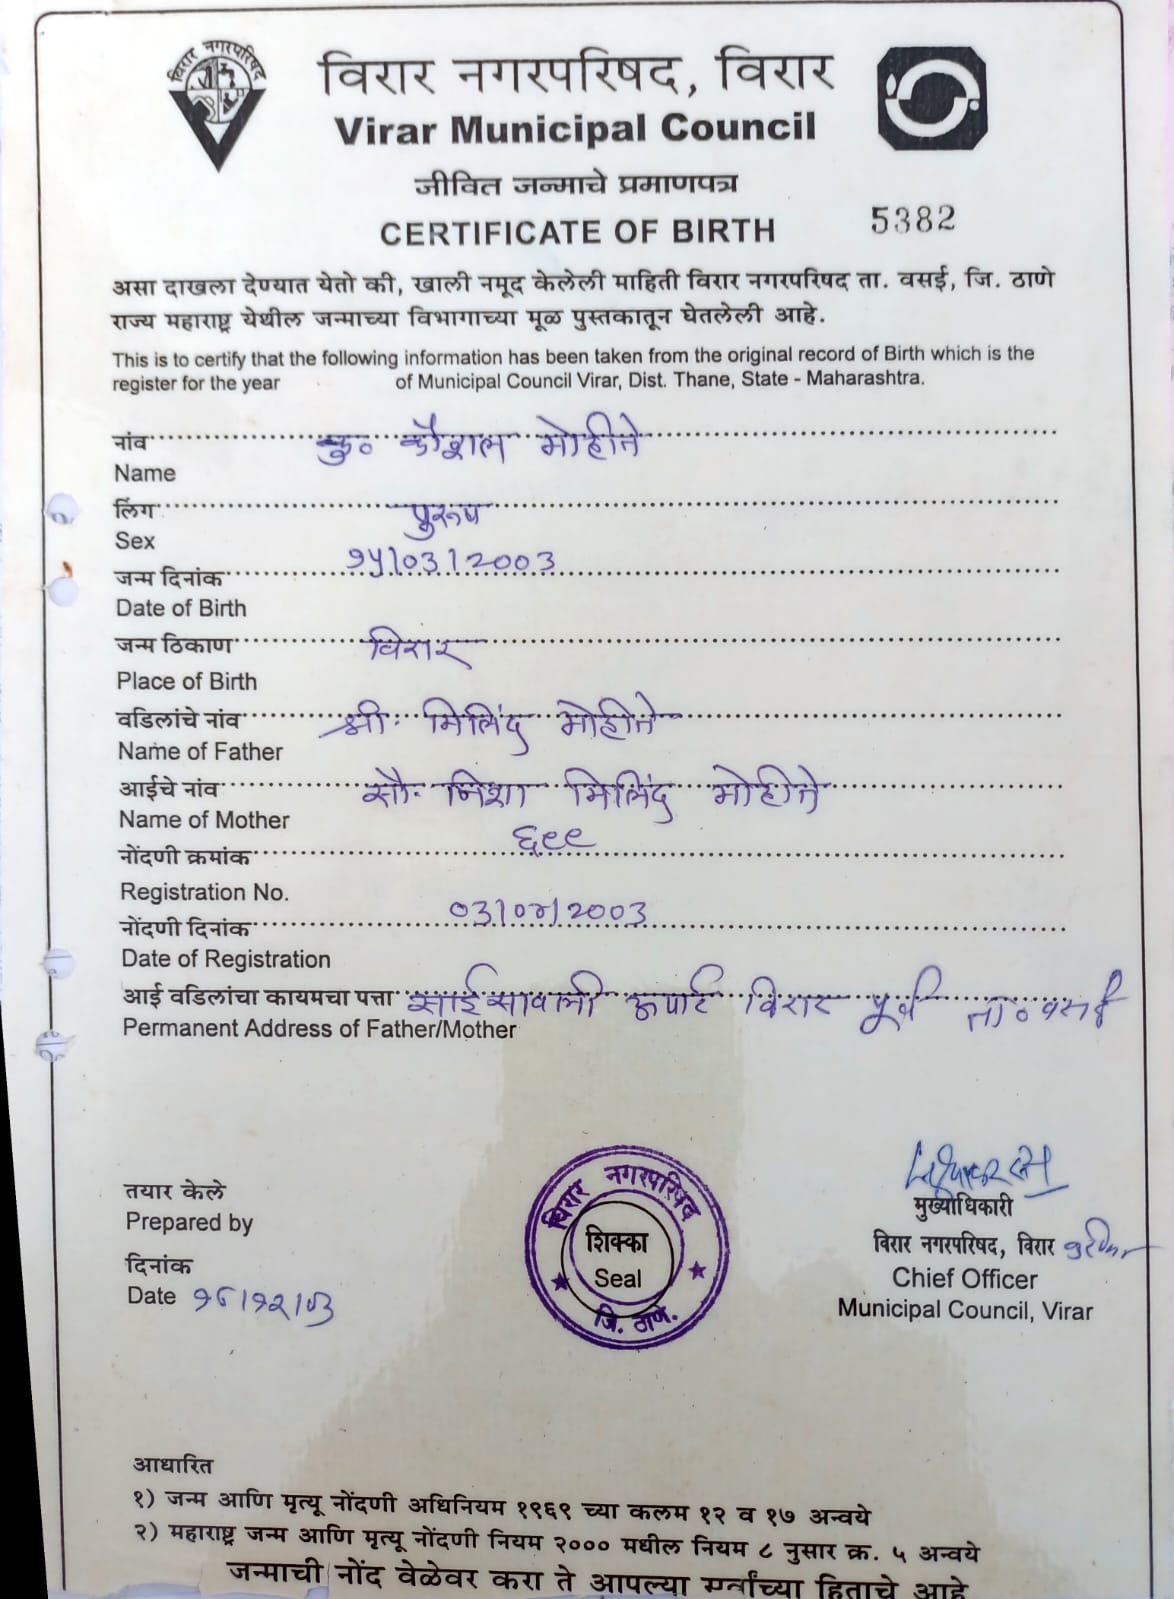 विरार नगरपरिषद
विरार नगरपरिषद, विरार
Virar Municipal Council
जीवित जन्माचे प्रमाणपत्र
CERTIFICATE OF BIRTH
5382
असा दाखला देण्यात येतो की, खाली नमूद केलेली माहिती विरार नगरपरिषद ता. वसई, जि. ठाणे
राज्य महाराष्ट्र येथील जन्माच्या विभागाच्या मूळ पुस्तकातून घेतलेली आहे.
This is to certify that the following information has been taken from the original record of Birth which is the
register for the year of Municipal Council Virar, Dist. Thane, State - Maharashtra.
नांव कु० कौशल मोहीते
Name
लिंग पुरूष
Sex
जन्म दिनांक १५/०३/२००३
Date of Birth
जन्म ठिकाण विरार
Place of Birth
वडिलांचे नांव श्री. मिलिंद मोहीते
Name of Father
आईचे नांव सौ. निशा मिलिंद मोहीते
Name of Mother
नोंदणी क्रमांक ६९९
Registration No.
नोंदणी दिनांक ०३/०४/२००३
Date of Registration
आई वडिलांचा कायमचा पत्ता साईसावली अपार्ट विरार पूर्व ता० वसई
Permanent Address of Father/Mother
तयार केले
Prepared by
दिनांक
Date १८/१२/०३
विरार नगरपरिषद
शिक्का
Seal
जि. ठाणे.
मुख्याधिकारी
विरार नगरपरिषद, विरार
Chief Officer
Municipal Council, Virar
आधारित
१) जन्म आणि मृत्यू नोंदणी अधिनियम १९६९ च्या कलम १२ व १७ अन्वये
२) महाराष्ट्र जन्म आणि मृत्यू नोंदणी नियम २००० मधील नियम ८ नुसार क्र. ५ अन्वये
जन्माची नोंद वेळेवर करा ते आपल्या सर्वांच्या हिताचे आहे